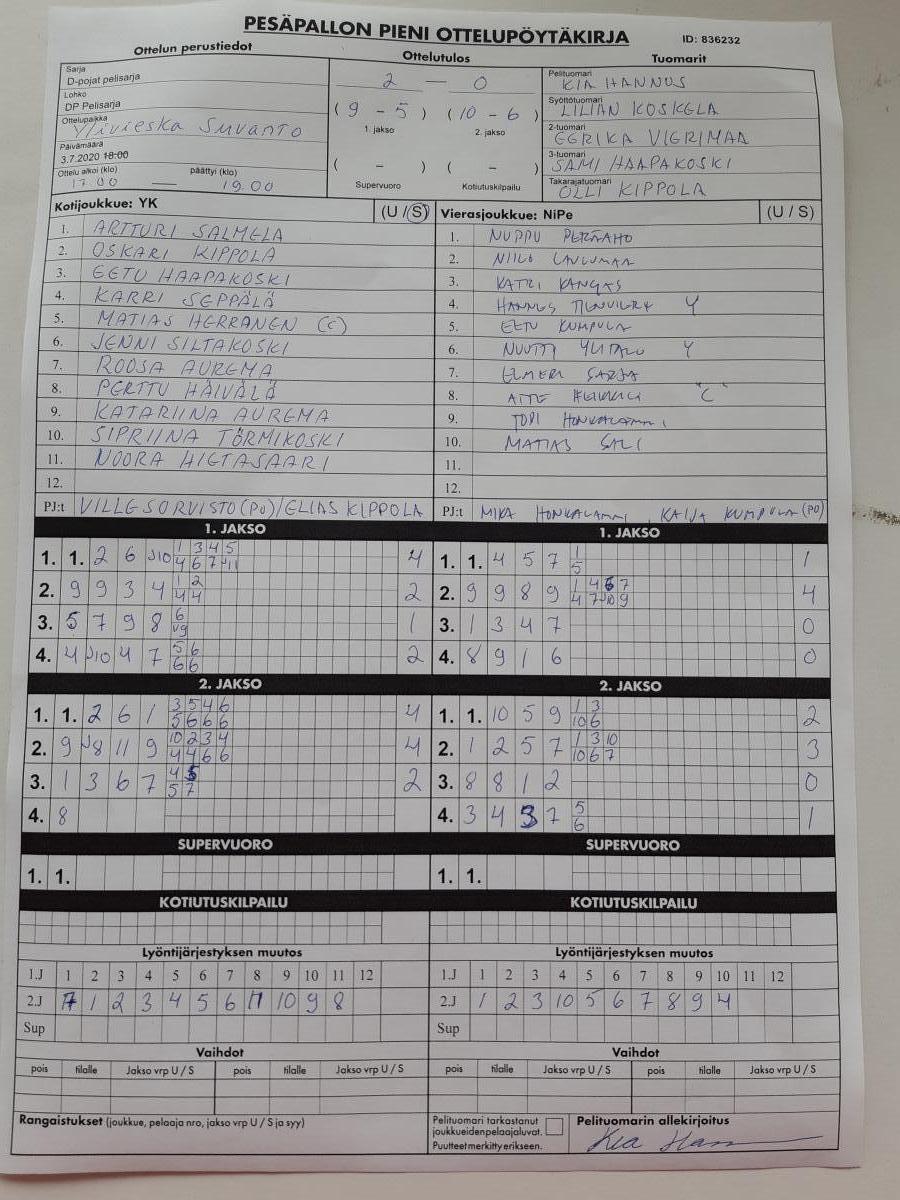 PESÄPALLON PIENI OTTELUPÖYTÄKIRJA
ID: 836232
Ottelun perustiedot
Ottelutulos
Tuomarit
Sarja
D-pojat pelisarja
Lohko
DP Pelisarja
Ottelupaikka
Ylivieska Suvanto
Päivämäärä
3.7.2020 18:00
Ottelu alkoi (klo) päättyi (klo)
17.00 — 19.00
2 — 0
(9 - 5) (10 - 6)
1. jakso 2. jakso
( - ) ( - )
Supervuoro Kotiutuskilpailu
Pelituomari
KIA HANNUS
Syöttötuomari
LILIAN KOSKELA
2-tuomari
EERIKA VIERIMAA
3-tuomari
SAMI HAAPAKOSKI
Takarajatuomari
OLLI KIPPOLA
Kotijoukkue: YK (U / S)
1. ARTTURI SALMELA
2. OSKARI KIPPOLA
3. EETU HAAPAKOSKI
4. KARRI SEPPÄLÄ
5. MATIAS HERRANEN (C)
6. JENNI SILTAKOSKI
7. ROOSA AUREMA
8. PERTTU HÄIVÄLÄ
9. KATARIINA AUREMA
10. SIPRIINA TÖRMIKOSKI
11. NOORA HIETASAARI
12.
PJ:t VILLE SORVISTO (PO) / ELIAS KIPPOLA
Vierasjoukkue: NiPe (U / S)
1. NUPPU PERÄAHO
2. NIILO
3. KATRI KANGAS
4. HANNES Y
5. EETU KUMPULA
6. NUUTTI YLITALO Y
7. ELMERI SARJA
8. "C"
9. TOPI HONKALAMMI
10. MATIAS SALI
11.
12.
PJ:t MIKA HONKALAMMI, KAIJA KUMPULA (PO)
1. JAKSO
1. 1. 2 6 J10 1 3 4 5 4
4 6 7 J11
2. 9 9 3 4 1 2 2
4 4
3. 5 7 9 8 6 1
V9
4. 4 J10 4 7 5 6 2
6 6
1. JAKSO
1. 1. 4 5 7 1 1
5
2. 9 9 8 9 1 4 6 7 4
4 7 J10 9
3. 1 3 4 7 0
4. 8 9 1 6 0
2. JAKSO
1. 1. 2 6 1 3 5 4 6 4
5 6 6 6
2. 9 J8 11 9 10 2 3 4 4
4 4 6 6
3. 1 3 6 7 4 5 2
5 7
4. 8
2. JAKSO
1. 1. 10 5 9 1 3 2
10 6
2. 1 2 5 7 1 3 10 3
10 6 7
3. 8 8 1 2 0
4. 3 4 3 7 5 1
6
SUPERVUORO
1. 1.
SUPERVUORO
1. 1.
KOTIUTUSKILPAILU
KOTIUTUSKILPAILU
Lyöntijärjestyksen muutos
1.J 1 2 3 4 5 6 7 8 9 10 11 12
2.J 7 1 2 3 4 5 6 11 10 9 8
Sup
Lyöntijärjestyksen muutos
1.J 1 2 3 4 5 6 7 8 9 10 11 12
2.J 1 2 3 10 5 6 7 8 9 4
Sup
Vaihdot
pois tilalle Jakso vrp U / S pois tilalle Jakso vrp U / S
Vaihdot
pois tilalle Jakso vrp U / S pois tilalle Jakso vrp U / S
Rangaistukset (joukkue, pelaaja nro, jakso vrp U / S ja syy)
Pelituomari tarkastanut
joukkueidenpelaajaluvat.
Puutteet merkitty erikseen.
Pelituomarin allekirjoitus
Kia Hann